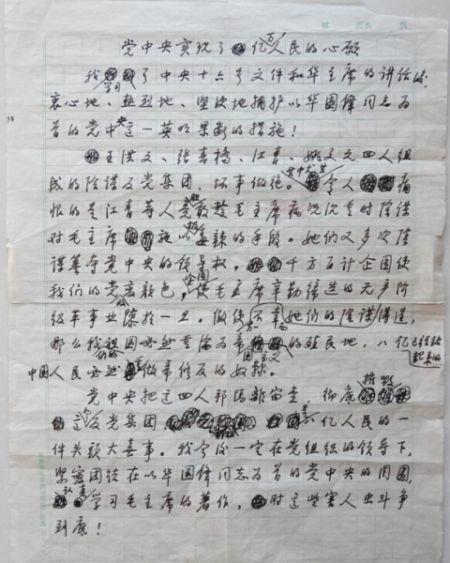 党中央实现了亿万人民的心愿
我学习了中央十六号文件和华主席的讲话后，
衷心地、热烈地、坚决地拥护以华国锋同志为
首的党中央这一英明果断的措施！
王洪文、张春桥、江青、姚文元四人组
成的阴谋反党集团，坏事做绝。令人痛
恨的是江青等人竟敢趁毛主席病况沉重时阴谋
对毛主席施以毒辣的手段。她们又多次阴
谋篡夺党中央的领导权。千方百计企图使
我们的党变颜色，使毛主席辛勤缔造的无产阶
级革事业隳于一旦。做使不幸她们的阴谋得逞，
那么我们的祖国必然要沦为帝国主义的殖民地，八亿已经站起来的
中国人民必然做帝修反的奴隶。
党中央把这四人郭隔离审查，彻底摧毁
这反党集团亿人民的一
件头号大喜事。我今后一定在党组织的领导下，
紧密团结在以华国锋同志为首的党中央的周围，
认真学习毛主席的著作，对这些害人虫斗争
到底！